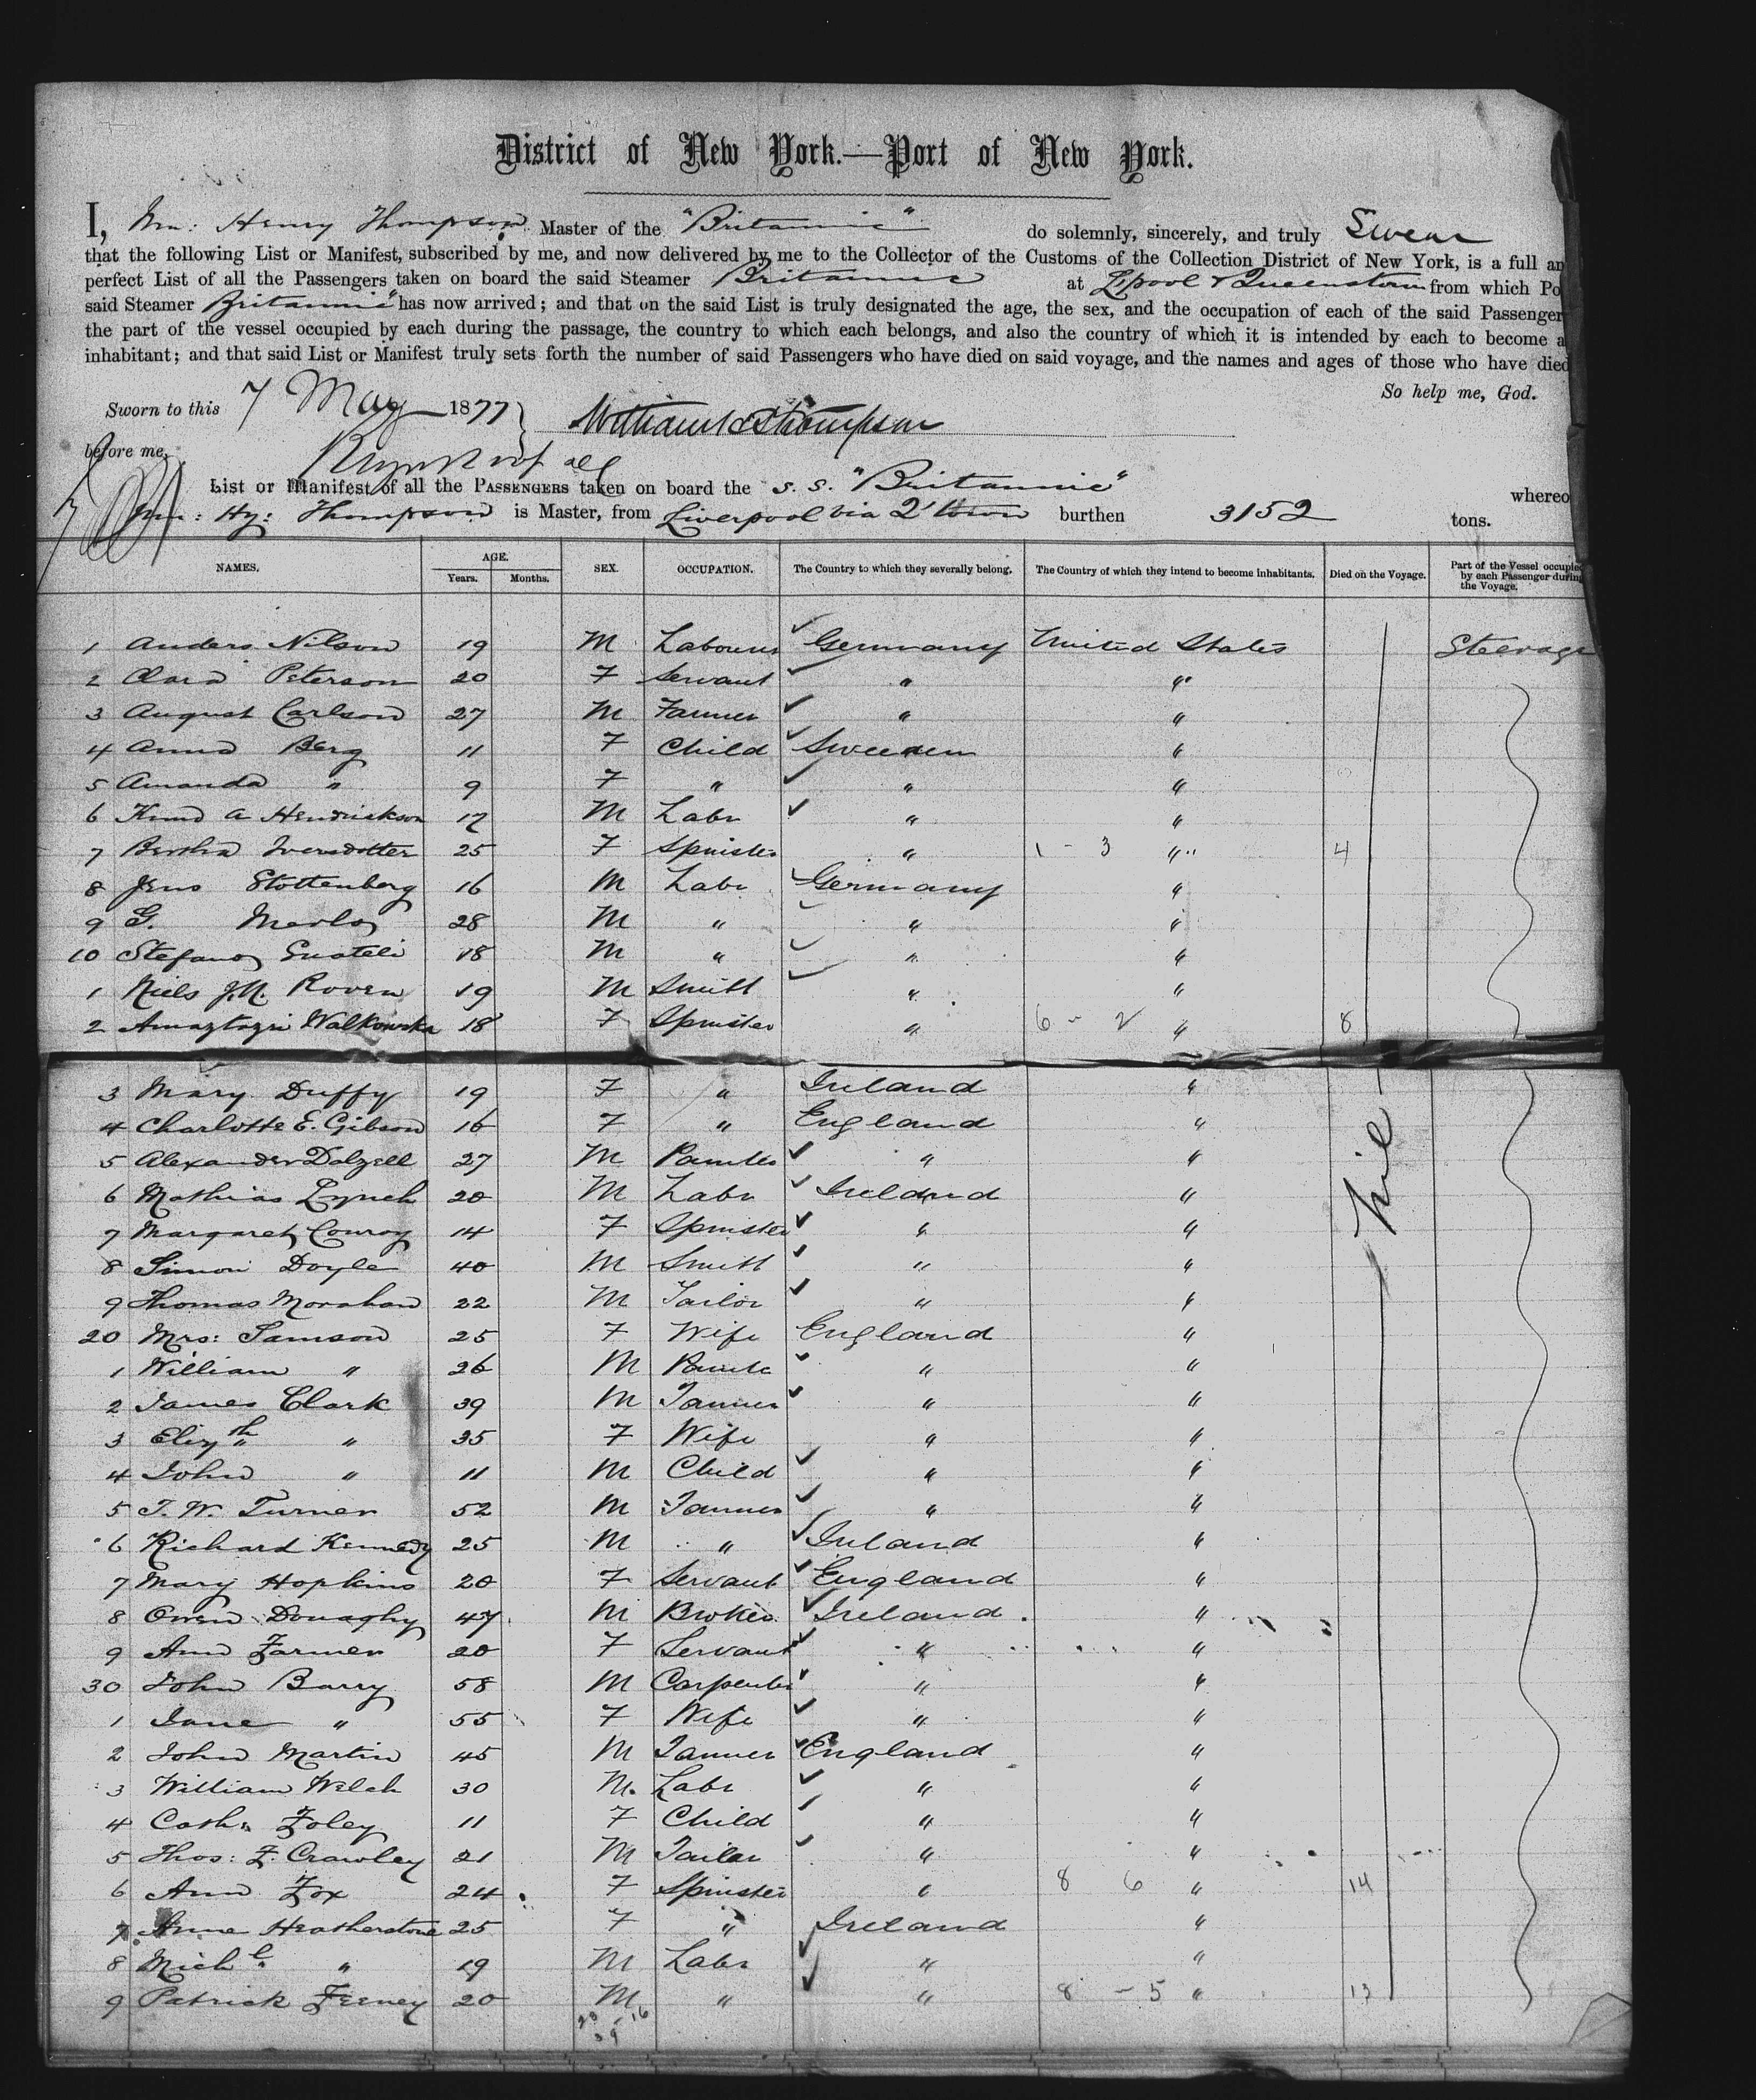 District of New York.—Port of New York.
I, Wm: Henry Thompson Master of the "Britannic" do solemnly, sincerely, and truly Swear
that the following List or Manifest, subscribed by me, and now delivered by me to the Collector of the Customs of the Collection District of New York, is a full an
perfect List of all the Passengers taken on board the said Steamer Britannic at L'pool & Queenstown from which Po
said Steamer Britannic" has now arrived; and that on the said List is truly designated the age, the sex, and the occupation of each of the said Passenger
the part of the vessel occupied by each during the passage, the country to which each belongs, and also the country of which it is intended by each to become a
inhabitant; and that said List or Manifest truly sets forth the number of said Passengers who have died on said voyage, and the names and ages of those who have died
So help me, God.
Sworn to this 7 May 1877 William H Thompson
before me,
List or Manifest of all the PASSENGERS taken on board the s.s. "Britannic" whereo
Wm: Hy: Thompson is Master, from Liverpool via Q'town burthen 3152 tons.
NAMES. AGE. Years. Months. SEX. OCCUPATION. The Country to which they severally belong. The Country of which they intend to become inhabitants. Died on the Voyage. Part of the Vessel occupied by each Passenger during the Voyage.
1 Anders Nilson 19 M Labourer Germany United States Steerage
2 Clara Peterson 20 F Servant " "
3 August Carlson 27 M Farmer " "
4 Anna Berg 11 F Child Sweeden "
5 Amanda " 9 F " " "
6 Knud A Hendrickson 17 M Labr " "
7 Bertha Iversdotter 25 F Spinster " 1 - 3 " 4
8 Jens Stottenberg 16 M Labr Germany "
9 G. 28 M " " "
10 Stefano 18 M " " "
1 Niels J.N. Roven 19 M Smith " "
2 Walkowska 18 F Spinster " 6 - 2 " 8
3 Mary Duffy 19 F " Ireland "
4 Charlotte E. Gibson 16 F " England "
5 Alexander Dalzell 27 M Painter " "
6 Mathias Lynch 20 M Labr Ireland "
7 Margaret Conroy 14 F Spinster " "
8 Simon Doyle 40 M Smith " "
9 Thomas Morahan 22 M Tailor " "
20 Mrs: Samson 25 F Wife England "
1 William " 26 M Painter " "
2 James Clark 39 M Farmer " "
3 Elizth " 35 F Wife " "
4 John " 11 M Child " "
5 T. W. Turner 52 M Farmer " "
6 Richard Kennedy 25 M " Ireland "
7 Mary Hopkins 20 F Servant England "
8 Owen Donaghy 47 M Broker Ireland "
9 Ann Farmer 20 F Servant " "
30 John Barry 58 M Carpenter " "
1 Jane " 55 F Wife " "
2 John Martin 45 M Farmer England "
3 William Welch 30 M. Labr " "
4 Cath: Foley 11 F Child " "
5 Thos: F. Crawley 21 M Tailor " "
6 Ann Fox 24 F Spinster " 8 6 " 14
7 Anne Heatherstone 25 F " Ireland "
8 Michl " 19 M Labr " "
9 Patrick Feeney 20 M " " 8 - 5 " 13
Nil
23 - 16
39